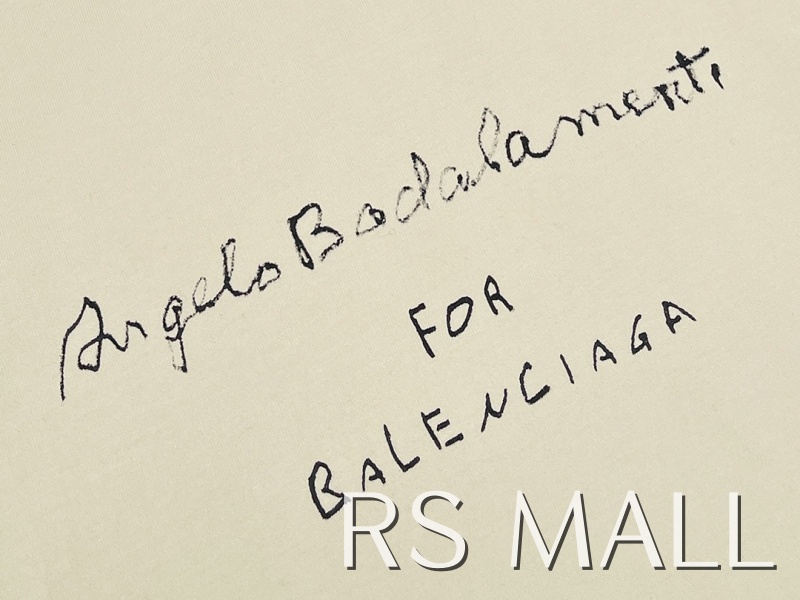 Angelo Badalamenti
FOR
BALENCIAGA
RS MALL